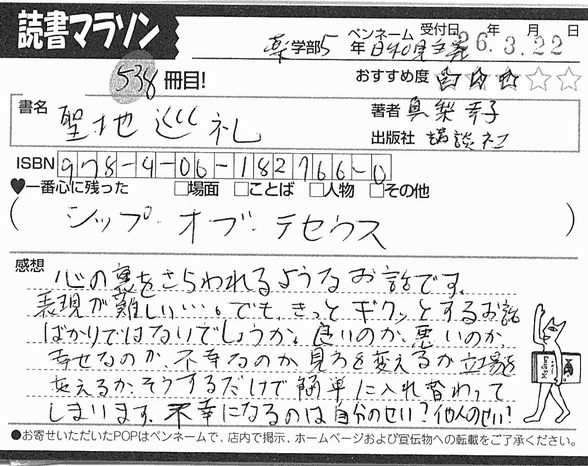 読書マラソン
薬学部5年 ペンネーム 日和見主義 受付日 26.年3.月22日
538冊目! おすすめ度 ★★★☆☆
書名 聖地巡礼 著者 真梨幸子
出版社 講談社
ISBN 978-4-06-182766-0
♥一番心に残った □場面 □ことば □人物 □その他
(シップ・オブ・テセウス)
感想
心の裏をさらわれるようなお話です。
表現が難しい…。でも、きっとギクッとするお話
ばかりではないでしょうか。良いのか、悪いのか
幸せなのか、不幸なのか、見方を変えるか立場を
変えるか、そうするだけで簡単に入れ替わって
しまいます。不幸になるのは自分のせい?他人のせい!
●お寄せいただいたPOPはペンネームで、店内で掲示、ホームページおよび宣伝物への転載をご了承ください。